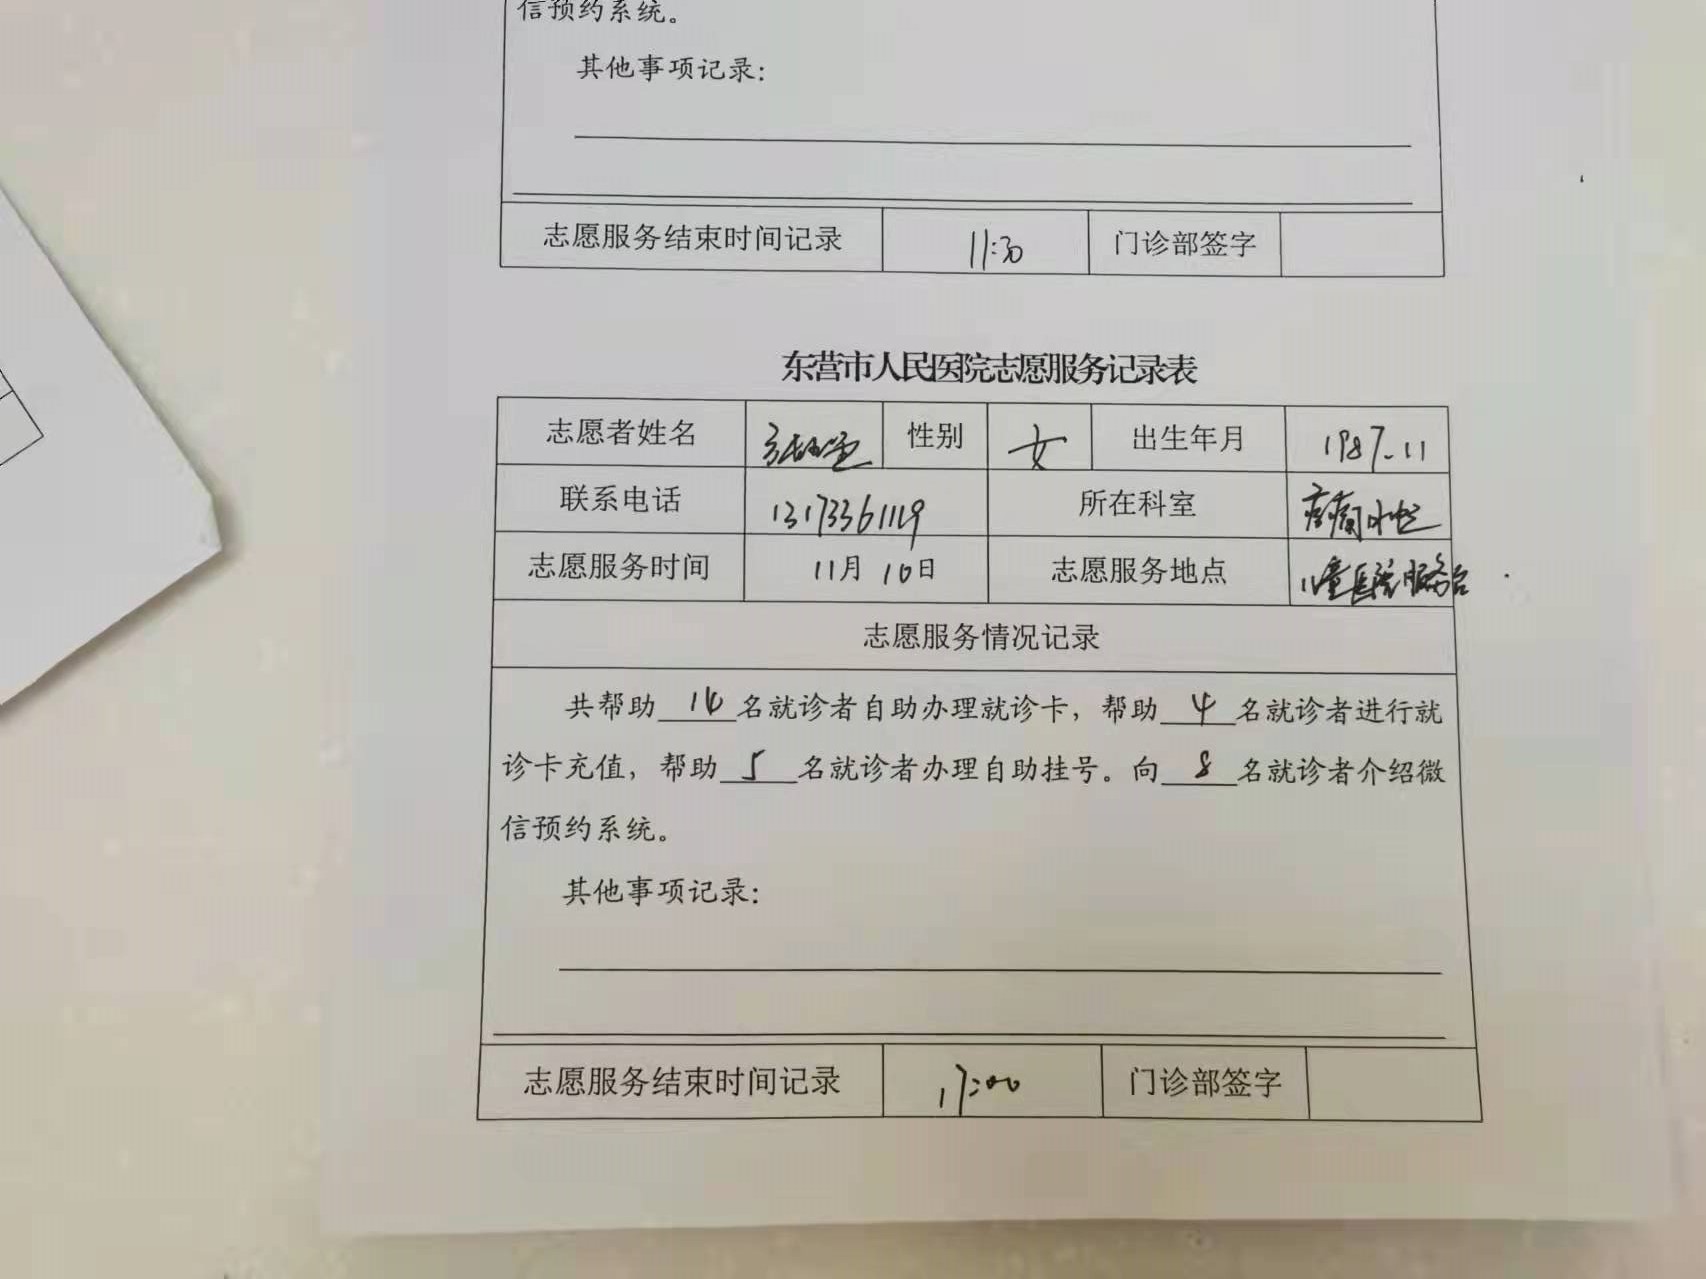 信预约系统。
其他事项记录：
志愿服务结束时间记录 11:30 门诊部签字
东营市人民医院志愿服务记录表
志愿者姓名 性别 女 出生年月 1987.11
联系电话 13173361119 所在科室
志愿服务时间 11月10日 志愿服务地点 儿童医院服务台
志愿服务情况记录
共帮助 名就诊者自助办理就诊卡，帮助 4 名就诊者进行就
诊卡充值，帮助 5 名就诊者办理自助挂号。向 8 名就诊者介绍微
信预约系统。
其他事项记录：
志愿服务结束时间记录 17:00 门诊部签字